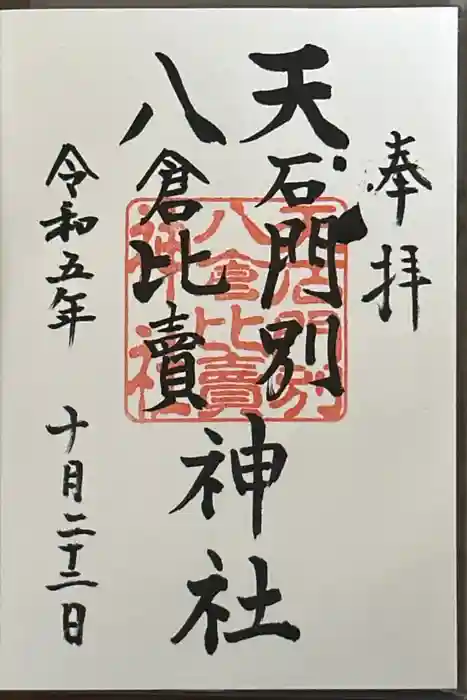 奉拝
天石門別
八倉比賣
神社
令和五年 十月二十二日
天石門別
八倉比賣
神社